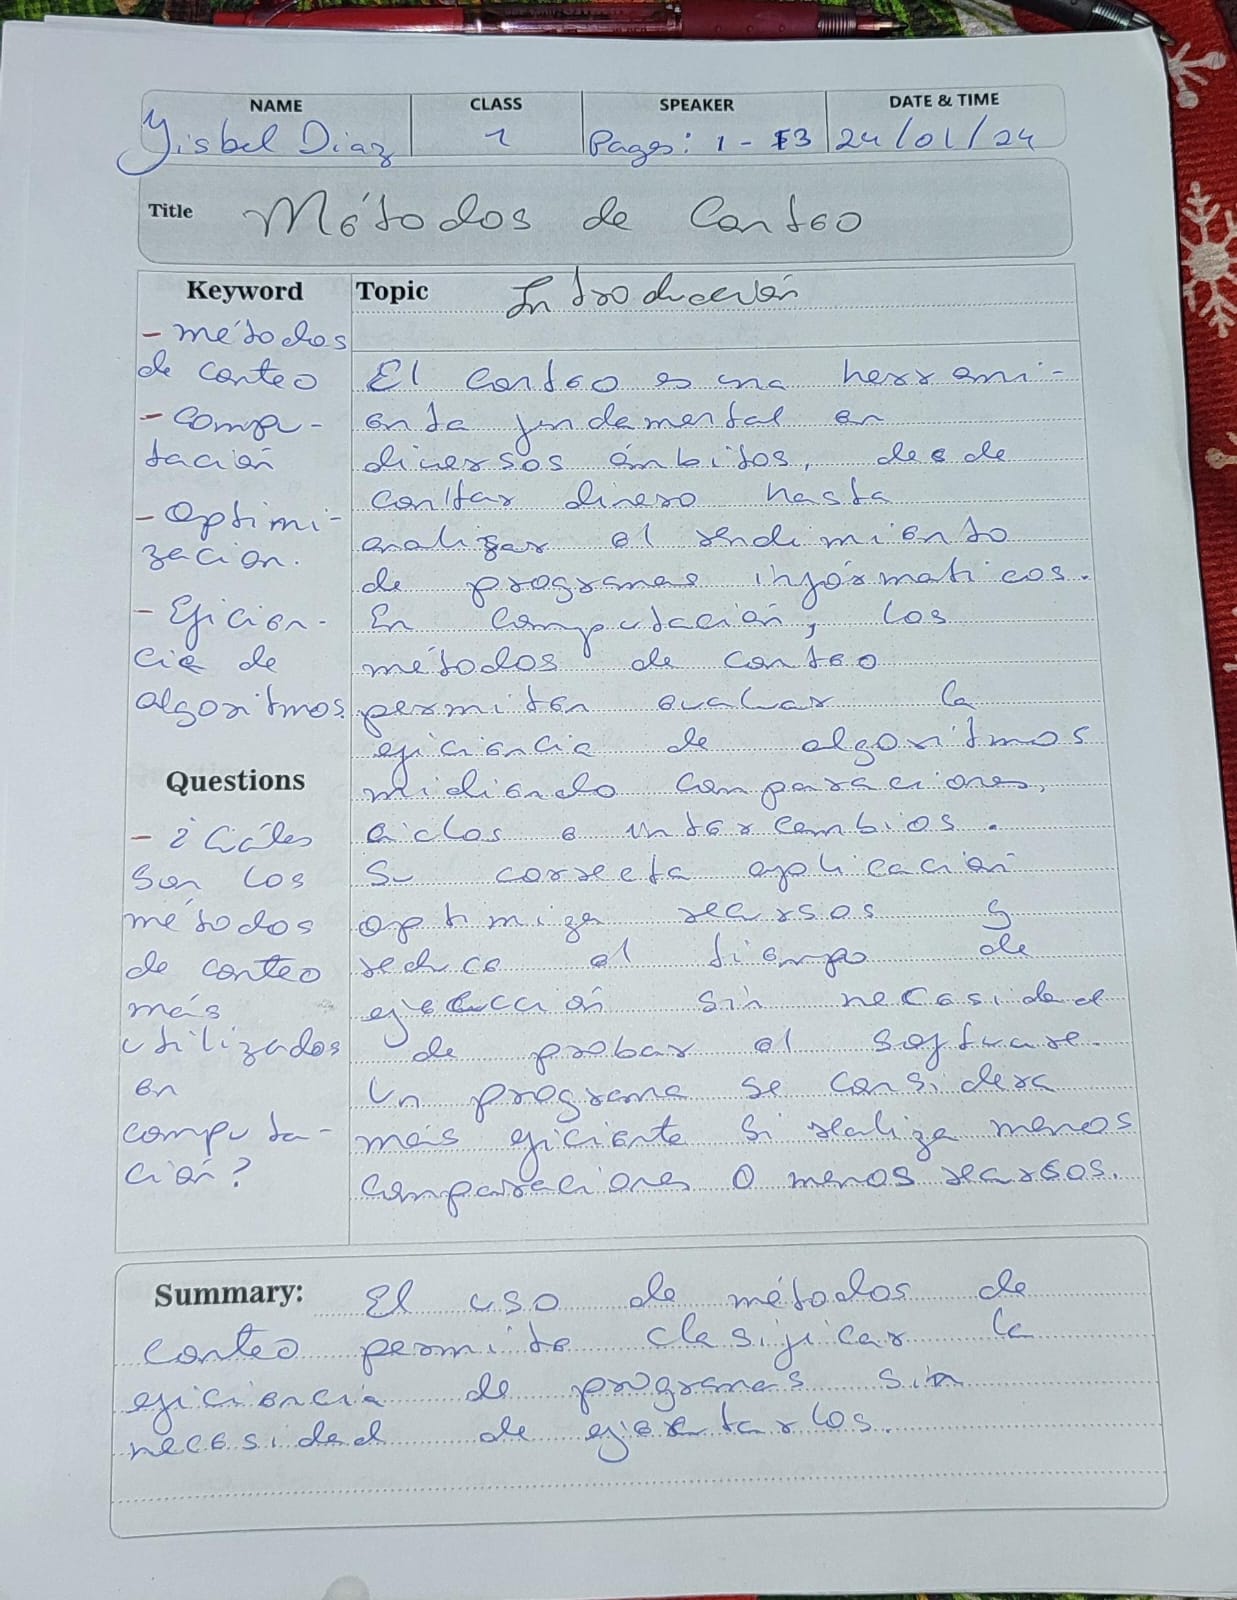 NAME CLASS SPEAKER DATE & TIME
Yisbel Diaz 1 Pages: 1 - 13 24/01/24
Title Métodos de Conteo
Keyword
- métodos
de conteo
- Compu-
tación
- Optimi-
zacion.
- Eficien-
cia de
algoritmos.
Questions
- ¿Cuáles
son los
métodos
de conteo
más
utilizados
en
computa-
ción?
Topic Introducción
El conteo es una herrami-
enta fundamental en
diversos ámbitos, desde
contar dinero hasta
analizar el rendimiento
de programas informáticos.
En computación, los
métodos de conteo
permiten evaluar la
eficiencia de algoritmos
midiendo comparaciones,
ciclos e intercambios.
Su correcta aplicación
optimiza recursos y
reduce el tiempo de
ejecución sin necesidad
de probar el software.
Un programa se considera
más eficiente si realiza menos
comparaciones o menos recursos.
Summary: El uso de métodos de
conteo permite clasificar la
eficiencia de programas sin
necesidad de ejecutarlos.